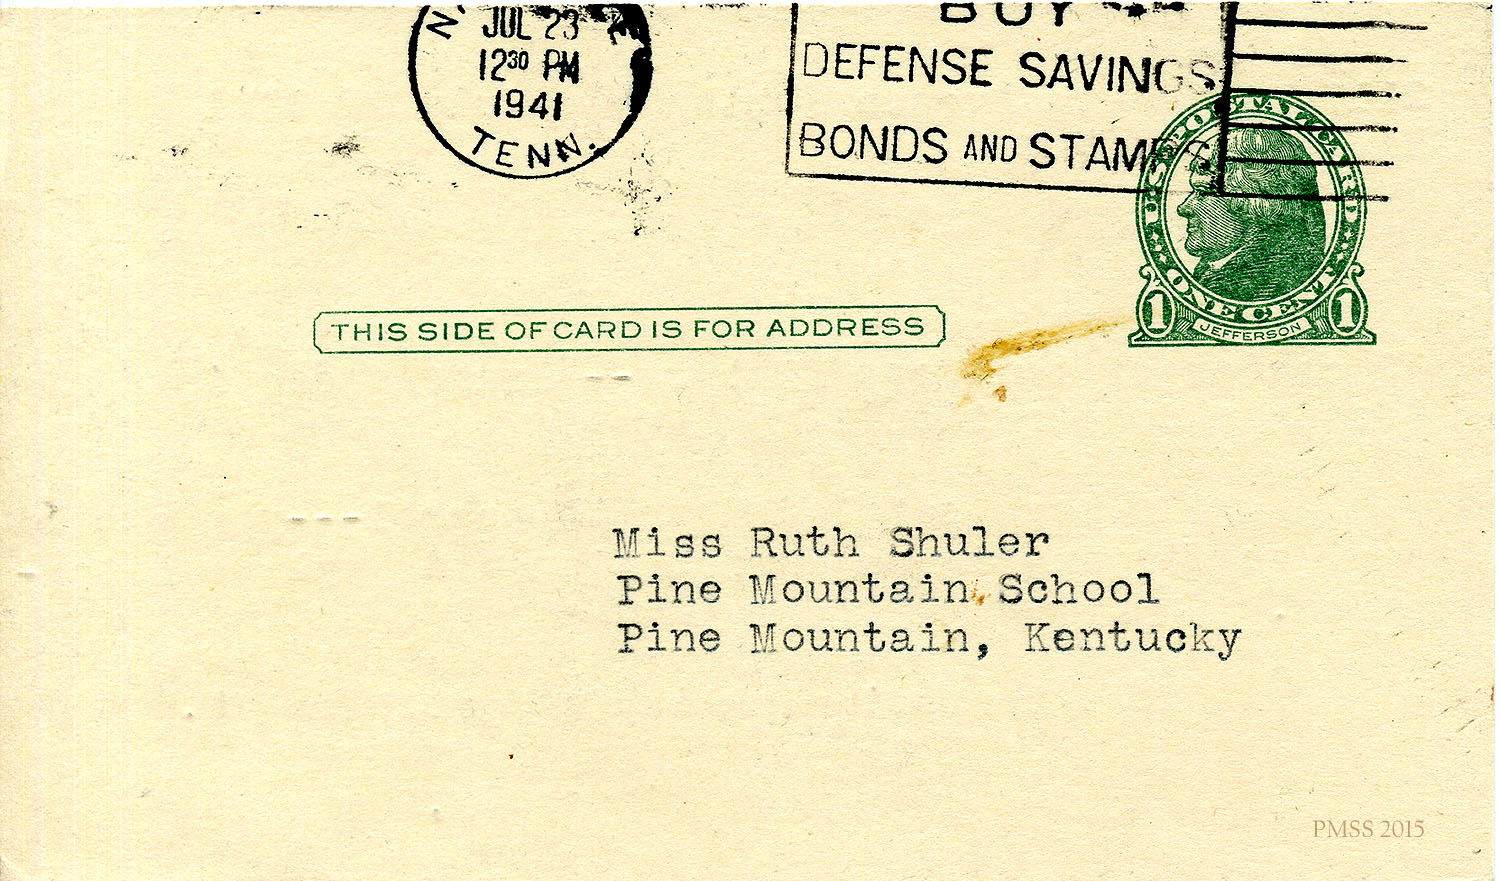 N.
JUL 23
12³⁰ PM
1941
TENN.
BUY
DEFENSE SAVINGS
BONDS AND STAMPS
U.S. POSTAL CARD
ONE CENT
1 JEFFERSON 1
THIS SIDE OF CARD IS FOR ADDRESS
Miss Ruth Shuler
Pine Mountain School
Pine Mountain, Kentucky
PMSS 2015